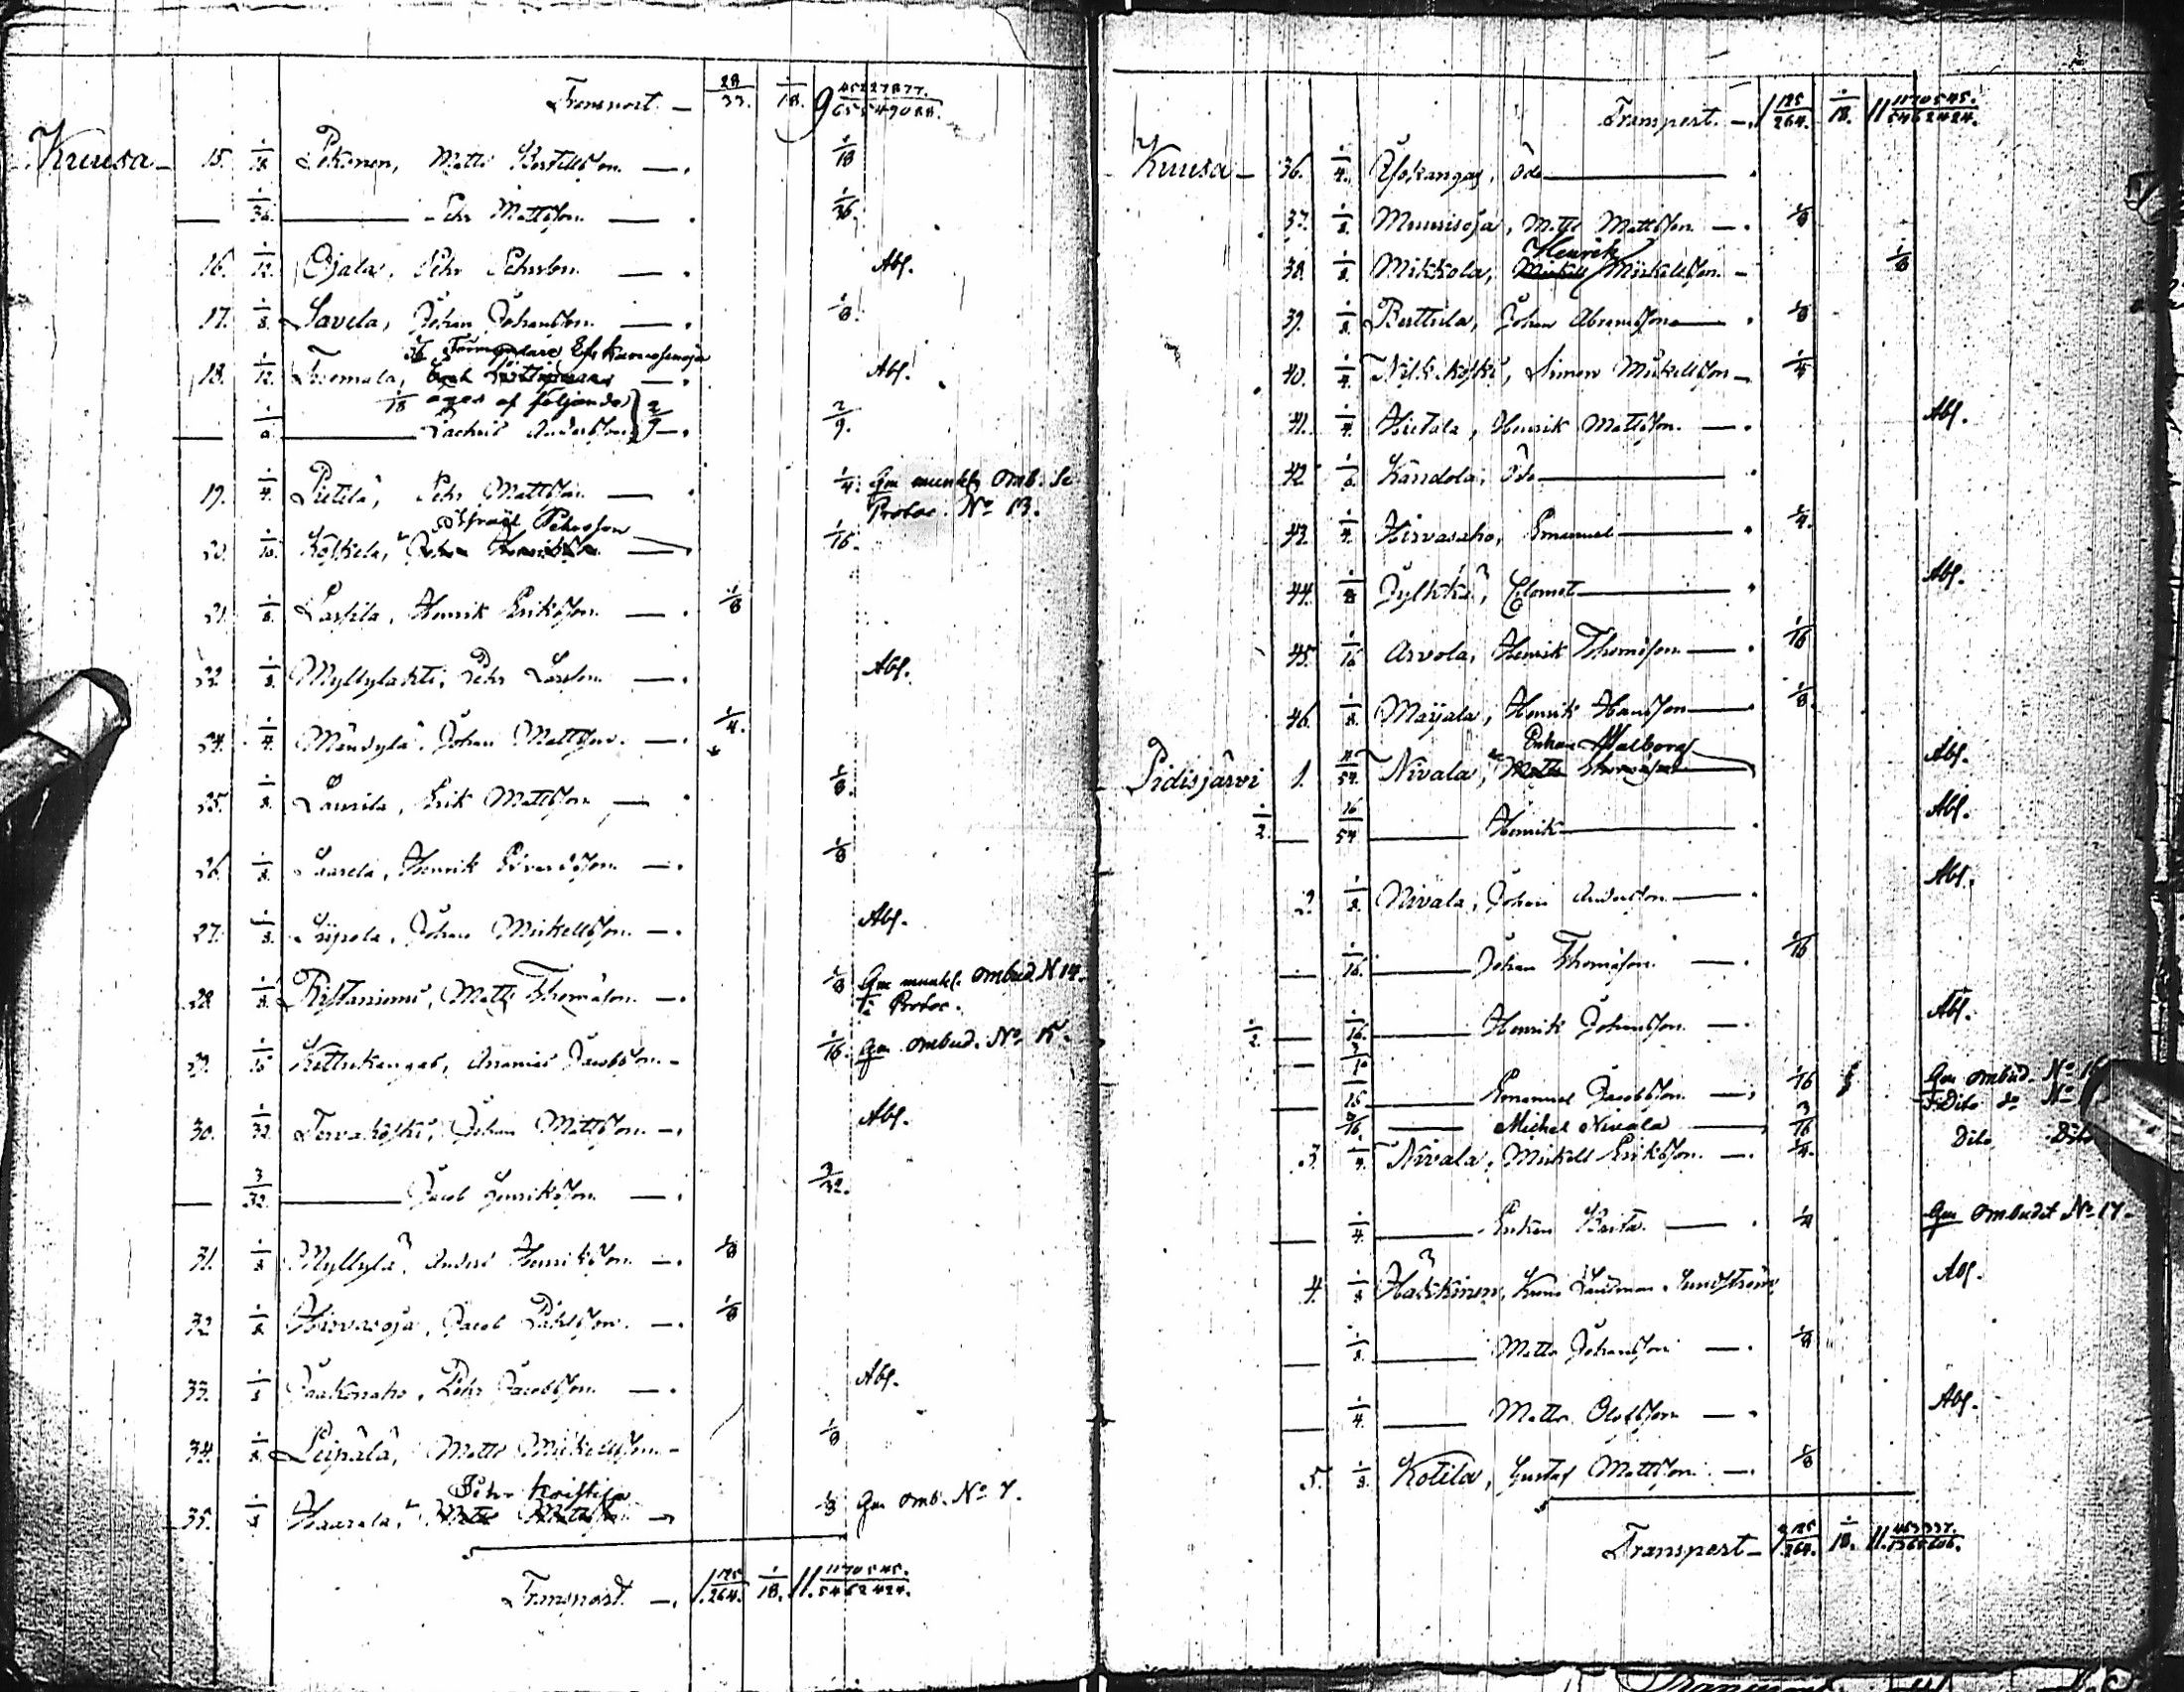 Transport — 28/33. 1/18. 9 45227877./65549088.
Kuusa — 15. 1/18 Pekonen, Matts Bertillsson —. 1/18
— 1/36. — Pehr Mattsson — . 1/36.
16. 1/12. Ojala, Pehr Pehrsson — . Abs.
17. 1/8. Savela, Johan Johansson — . 1/8.
18. 1/12. Tuomala, — . Abs.
1/18 äges af följande
— 1/6. — Zachris Andersson 2/9 —. 2/9.
19. 1/4. Pietilä, Pehr Mattsson — . 1/4. Gm munkl. Omb. Se
Protoc. No 13.
Israel Pehrsson
20. 1/16. Kölkelä, Johan Henriksson — 1/16.
21. 1/8. Lassila, Henrik Eriksson — . 1/8
22. 1/8. Myllylahti, Pehr Larsson — . Abs.
24. 1/4. Mändylä, Johan Mattsson. — . 1/4.
25. 1/8. Laurila, Erik Mattsson — . 1/8.
26. 1/8. Saarela, Henrik Edvardsson —. 1/8
27. 1/8. Seppälä, Johan Mickellsson —. Abs.
28. 1/8. Ristaniemi, Matts Thomasson —. 1/8 Gm munkl. ombud N 14.
i Protoc.
29. 1/16 Kettukangas, Ananias Jacobsson — 1/16. Gm ombud. No 15.
30. 1/32. Tervakoski, Johan Mattsson —. Abs.
— 3/32. — Jacob Henriksson — . 3/32.
31. 1/8 Myllylä, Anders Henriksson —. 1/8
32. 1/8. Hirvasoja, Jacob Påhlsson. — . 1/8
33. 1/8 Jaakonaho, Pehr Jacobsson — . Abs.
34. 1/8. Leipälä, Matts Mickellsson — 1/8
Pehr Kristian
35. 1/8 Haarala, Matts Mattsson — 1/8 Gm omb. No 7.
Transport. —. 1 125/264. 1/18. 11. 1170545./5462424.
Transport. —. 1 125/264. 1/18. 11 1170545./5462424.
Kuusa — 36. 1/4. Isokangas, Öde — .
37. 1/8. Muurisoja, Matts Mattsson —. 1/8
Henrik
38. 1/8. Mikkola, Mickell Mickellsson — 1/8
39. 1/8. Perttula, Johan Abramsson — . 1/8
40. 1/4. Niskakoski, Simon Mickellsson — 1/4
41. 1/4. Hietala, Henrik Mattsson. — . Abs.
42 1/6. Kandola, Öde — .
43. 1/4. Hirvasaho, Emanuel — . 1/4.
44. 1/8 Jylkkä, Clomet — . Abs.
45. 1/16 Arvola, Henrik Thomasson — . 1/16
46. 1/8. Maijala, Henrik Hansson — . 1/8.
Enkan Walborg
Pidisjärvi 1. 11/54. Nivala, Matts Thomasson — Abs.
1/2. — 16/54 — Henrik — . Abs.
2. 1/8. Nivala, Johan Andersson — . Abs.
— 1/16. — Johan Thomasson. — . 1/16
1/2. — 1/16. — Henrik Johansson — . Abs.
— 1/16 — Emanuel Jacobsson —, 1/16 Gm ombud. No 16
3/16 — Michel Nivala — 3/16 Dito Dito
3. 1/4. Nivala, Mickell Eriksson. — . 1/4.
— 1/4. — Enkan Brita. — . 1/4 Gm ombudet No 17.
4. 1/8 Häkkinen, Krono Länsman Lundström Abs.
— 1/8. — Matts Johansson — . 1/8
— 1/4. — Matts Olofsson — . Abs.
5. 1/8. Kotila, Gustaf Mattsson. — . 1/8
Transport — 2 125/264. 1/18. 11. 453337./1365606.